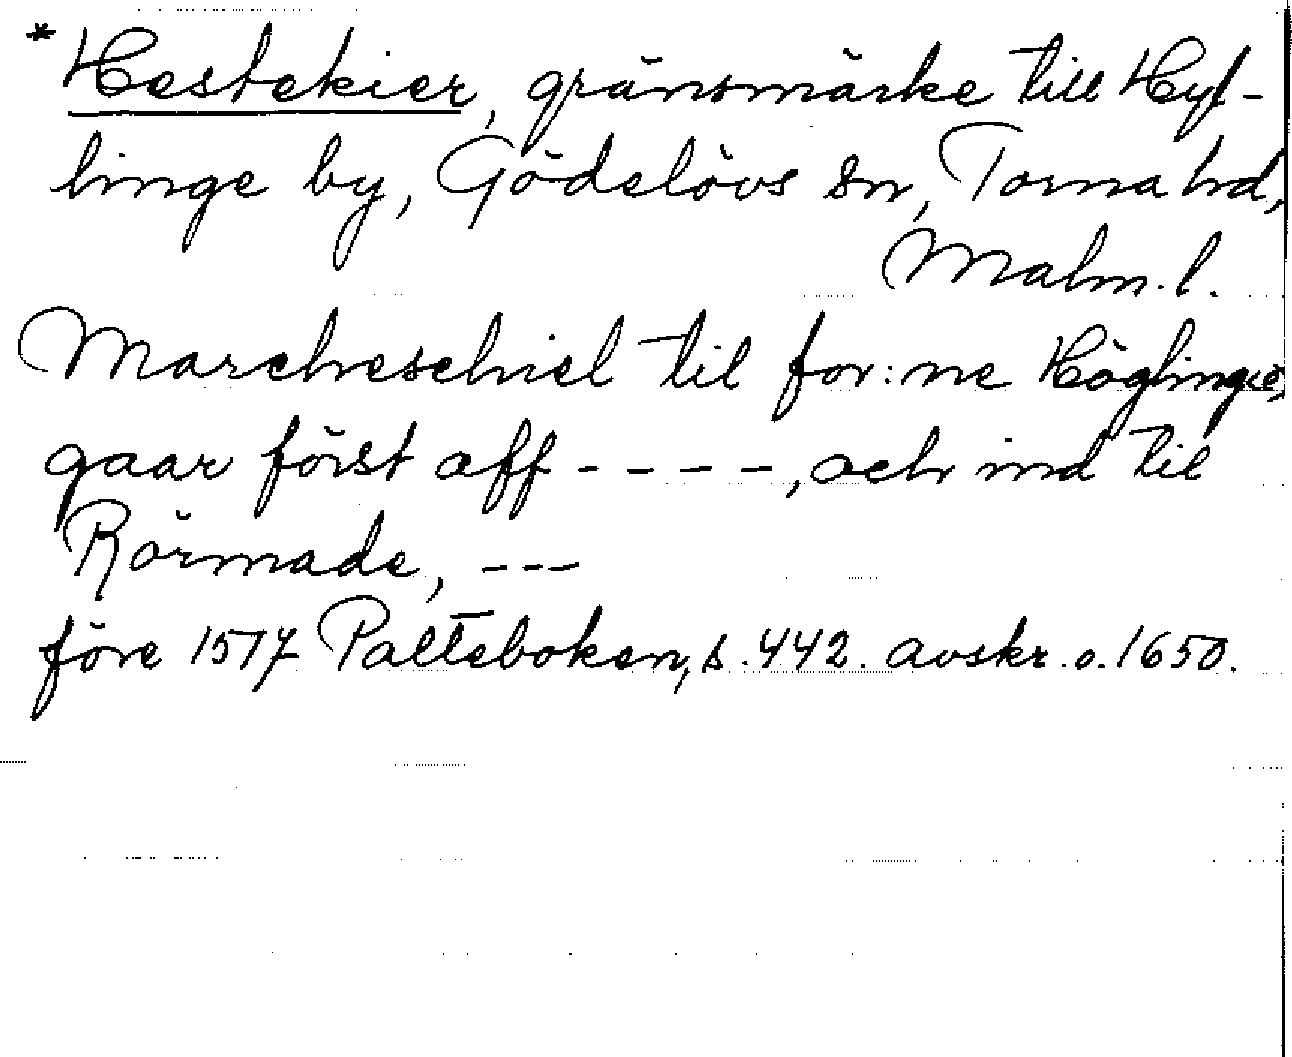 * Hestekier, gränsmärke till Hyf-
linge by, Gödelövs sn, Torna hd,
Malm. l.
Marcheschiel til for:ne Höglinge,
gaar först aff - - - -, och ind til
Rörmade, ---
före 1517 Palteboken, s. 442. avskr. o. 1650.